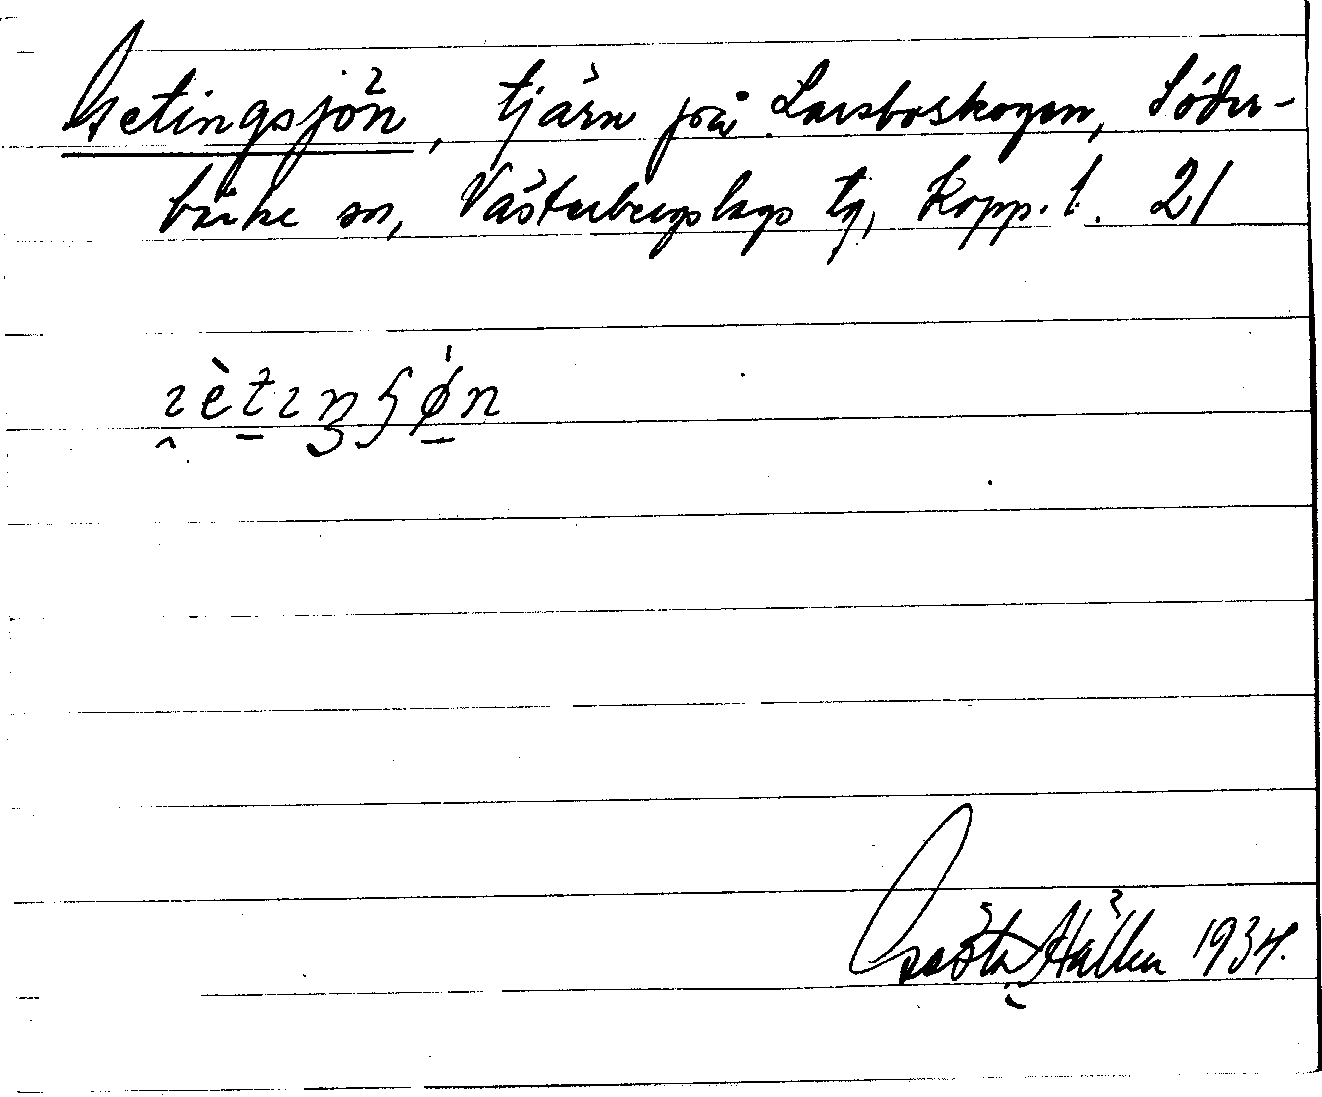 Getingsjön, tjärn på Larsboskogen, Söder-
bärke sn, Västerbergslags tg, Kopp. l. 21
Gösta Hállen 1934.